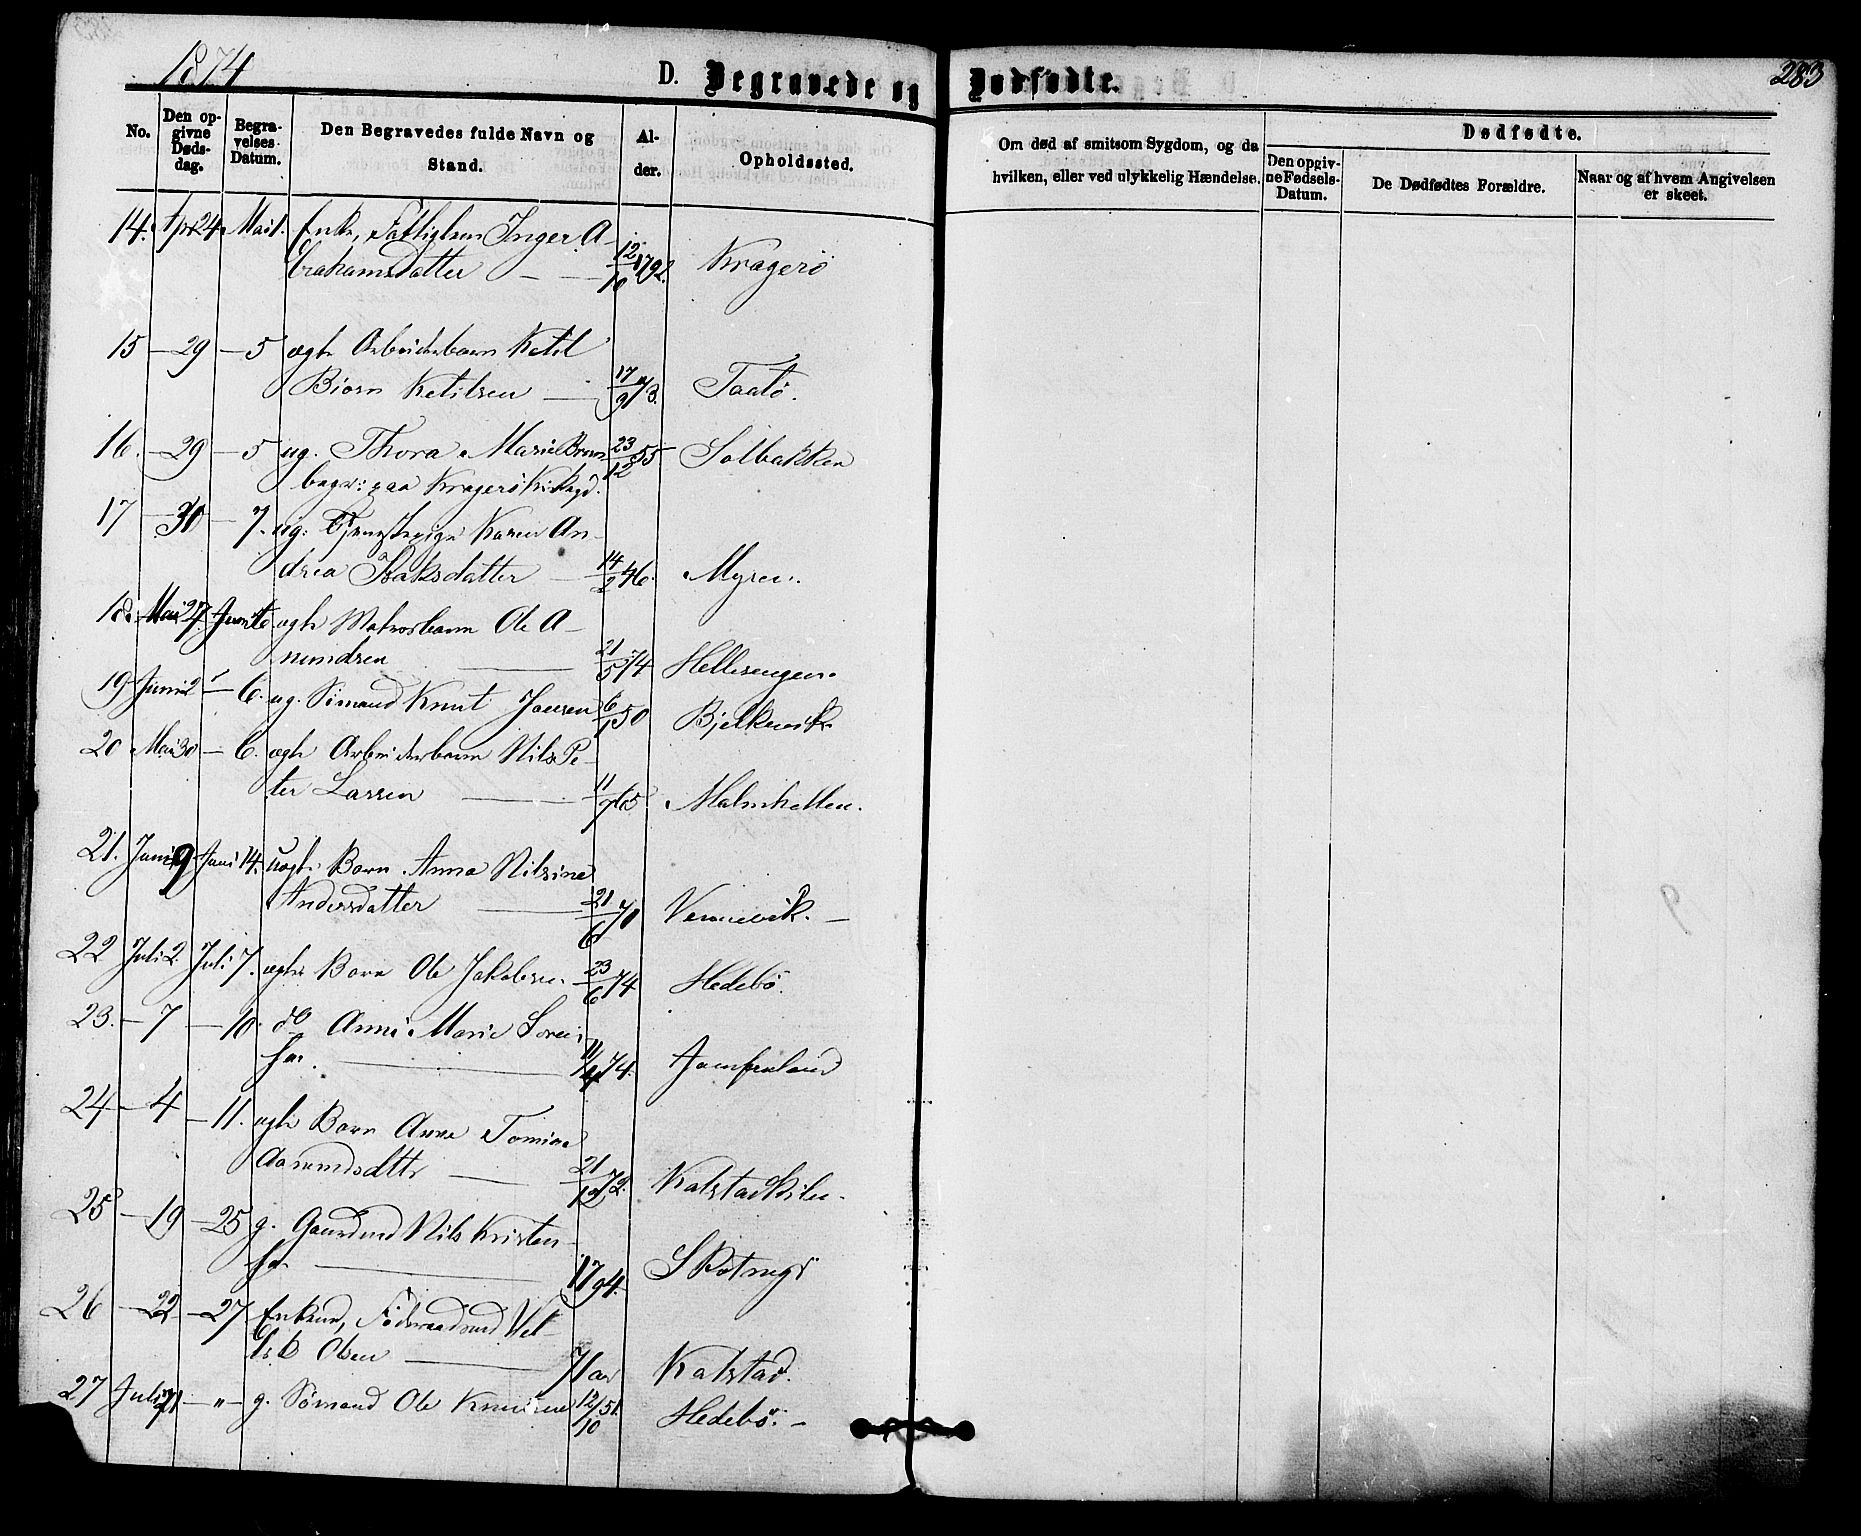 1874
D. Begravede og Dødfødte.
283
No.
Den opgivne Dødsdag.
Begravelses-Datum.
Den Begravedes fulde Navn og Stand.
Alder.
Opholdssted.
Om død af smitsom Sygdom, og da hvilken, eller ved ulykkelig Hændelse.
Dødfødte.
Den opgivne Fødsels-Datum.
De Dødfødtes Forældre.
Naar og af hvem Angivelsen er skeet.
14. Apr 24 Mai 1. Enke, Inger A-
brahamsdatter — 12/10 1792. Kragerø
15 — 29 — 5 ægte Arbeiderbarn Ketil
Biørn Ketilsen — 17/9 73. Taatø.
16. — 29 — 5 ug. Thora Marie Brun
begr: paa Kragerø 23/12 55 Solbakken
17 — 30 — 7. ug. Tjenestepige Karen An-
drea Isaksdatter — 14/2 46. Myren.
18. Mai 27 Juni 6. ægte Matrosbarn Ole A-
nundsen — 21/5 74 Hellesengen.
19 Juni 2 — 6. ug. Sømand Knut Jansen 6/1 50 Bjelkevik
20 Mai 30 — 6. ægte Arbeiderbarn Nils Pe-
ter Larsen — 11/7 65 Malmhellen.
21. Juni 9 Juni 14. uægte Barn Anna Nilsine
Andersdatter — 21/6 70 Vennevik. —
22 Juli 2. Juli 7. ægte Barn Ole Jakobsen 23/6 74 Hedebø.
23. — 7 — 10. do Anne Marie Soren-
sen. — 11/4 74. Jomfruland
24 — 4 — 11. ægte Barn Anne Tomine
Aanundsdttr — 21/12 72. Kalstadkilen.
25 — 19 — 25 g. Gaardmd Nils Kristen-
sen. — 1794.
26 — 22 — 27 Enkem, Føderaadsmd
Olsen — 71 aar Kalstad.
27 Juli 21 — " — g. Sømand Ole Knudsen 12/10 51. Hedebø. —